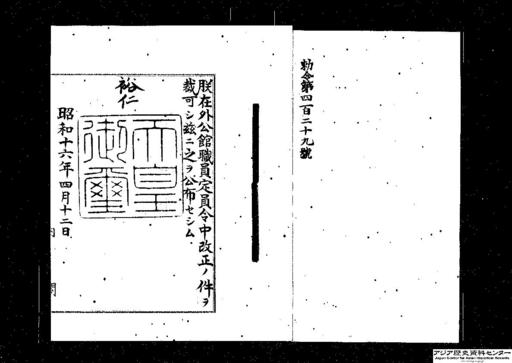 勅令第四百二十九號
朕在外公館職員定員令中改正ノ件ヲ
裁可シ玆ニ之ヲ公布セシム
裕仁
天皇
御璽
昭和十六年四月十二日
アジア歴史資料センター
Japan Center for Asian Historical Records